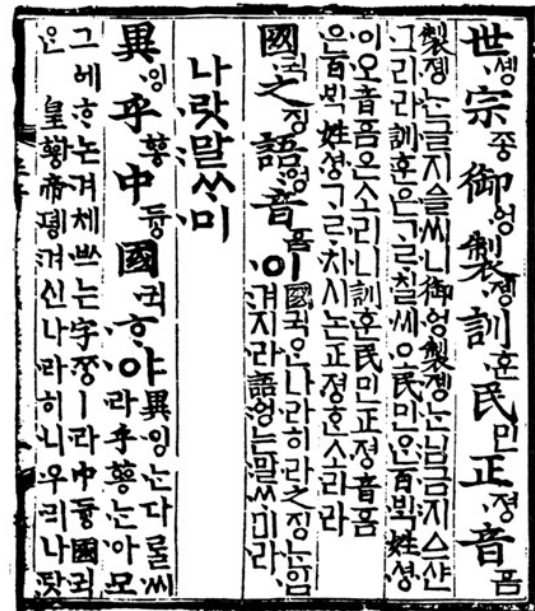 世솅宗조ᇰ御ᅌᅥᆼ製졩訓훈民민正져ᇰ音ᅙᅳᆷ
製졩ᄂᆞᆫ글지ᅀᅳᆯ씨니御ᅌᅥᆼ製졩ᄂᆞᆫ님금지ᅀᅳ샨
그리라訓훈은ᄀᆞᄅᆞ칠씨오民민ᄋᆞᆫ百ᄇᆡᆨ姓셔ᇰ
이오音ᅙᅳᆷ은소리니訓훈民민正져ᇰ音ᅙᅳᆷ
은百ᄇᆡᆨ姓셔ᇰᄀᆞᄅᆞ치시논正져ᇰᄒᆞᆫ소리라
國귁之징語ᅌᅥᆼ音ᅙᅳᆷ이
國귁ᄋᆞᆫ나라히라之징ᄂᆞᆫ입
겨지라語ᅌᅥᆼᄂᆞᆫ말ᄊᆞ미라
나랏말ᄊᆞ미
異잉乎ᅘᅩᆼ中듀ᇰ國귁ᄒᆞ야
異잉ᄂᆞᆫ다ᄅᆞᆯ씨
라乎ᅘᅩᆼᄂᆞᆫ아모
그ᅌᅦᄒᆞ논겨체ᄡᅳ는字ᄍᆞᆼㅣ라中듀ᇰ國귁
ᄋᆞᆫ皇ᅘᅪᇰ帝뎽겨신나라히니우리나랏